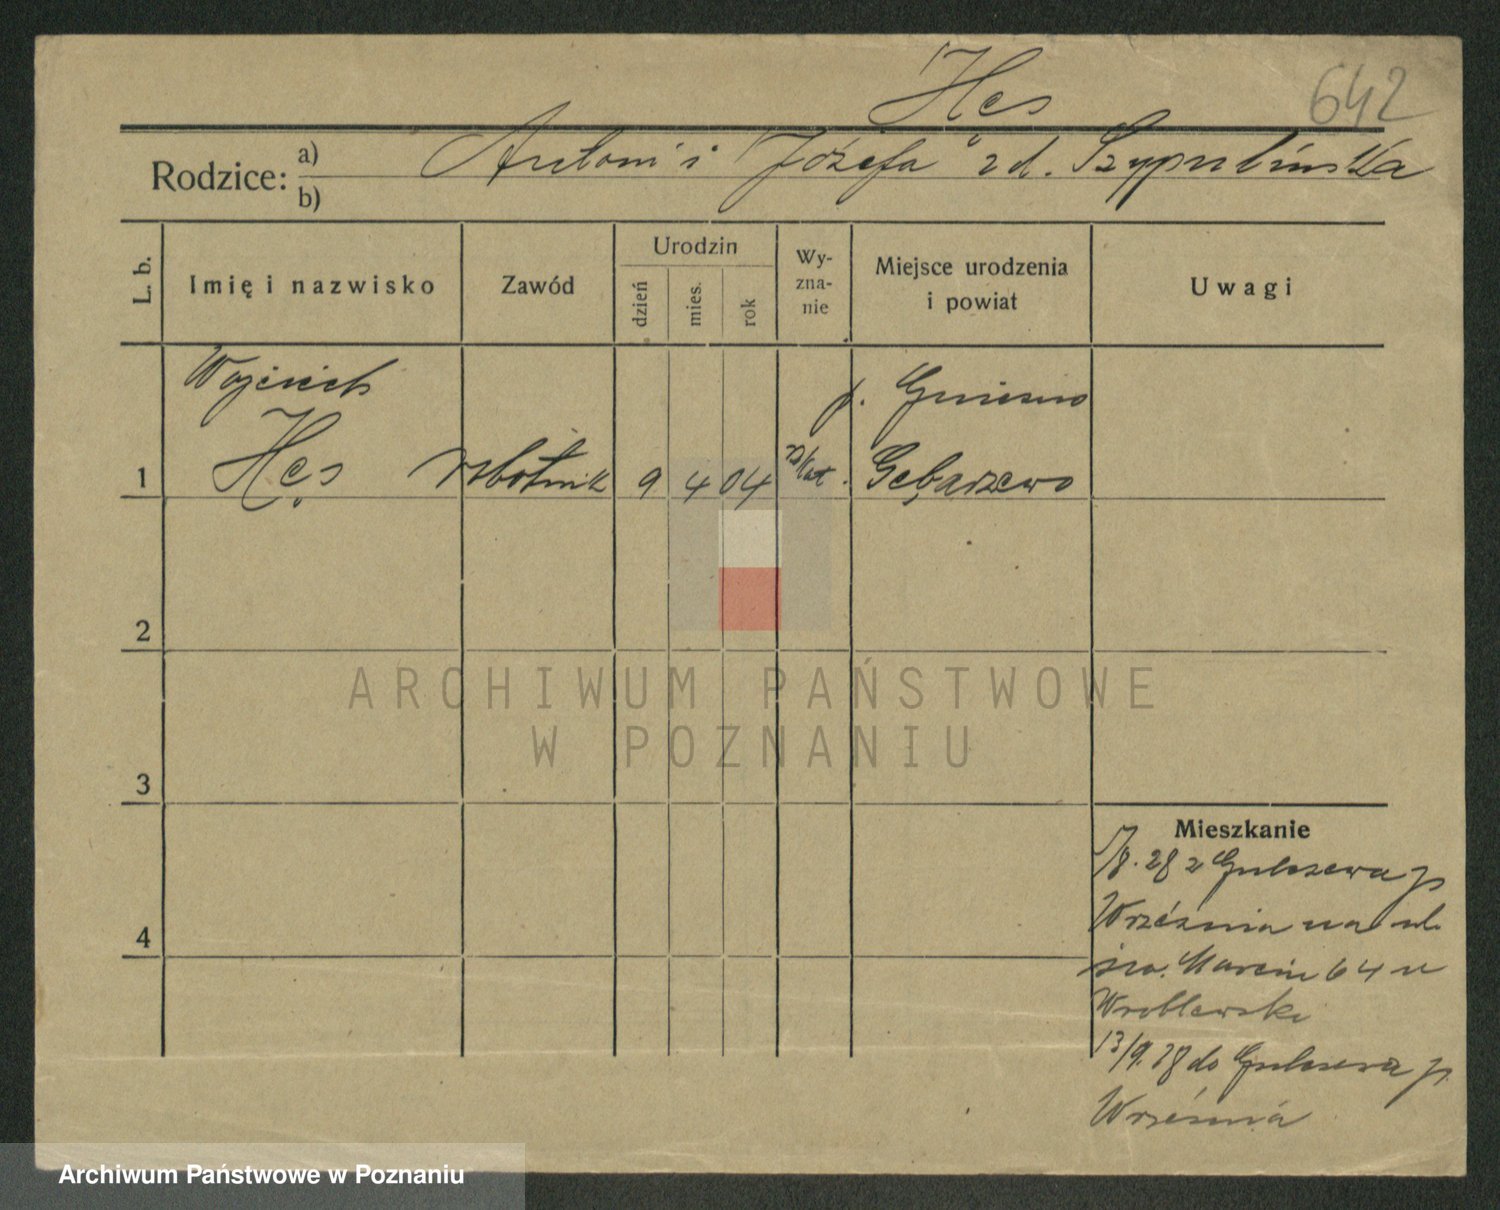 Hęs
642
Rodzice: a) Antoni i Józefa zd. Szypulińska
b)
L. b.
Imię i nazwisko
Zawód
Urodzin
dzień
mies.
rok
Wy-
zna-
nie
Miejsce urodzenia
i powiat
Uwagi
Wojciech
p. Gniezno
1 Hęs robotnik 9 4 04 rz/kat. Gębarzewo
2
3
4
Mieszkanie
/8.28 z p
Września na ul.
św. Marcin 64 u
Wroblewski
13/9.28 do p.
Września
ARCHIWUM PAŃSTWOWE
W POZNANIU
Archiwum Państwowe w Poznaniu